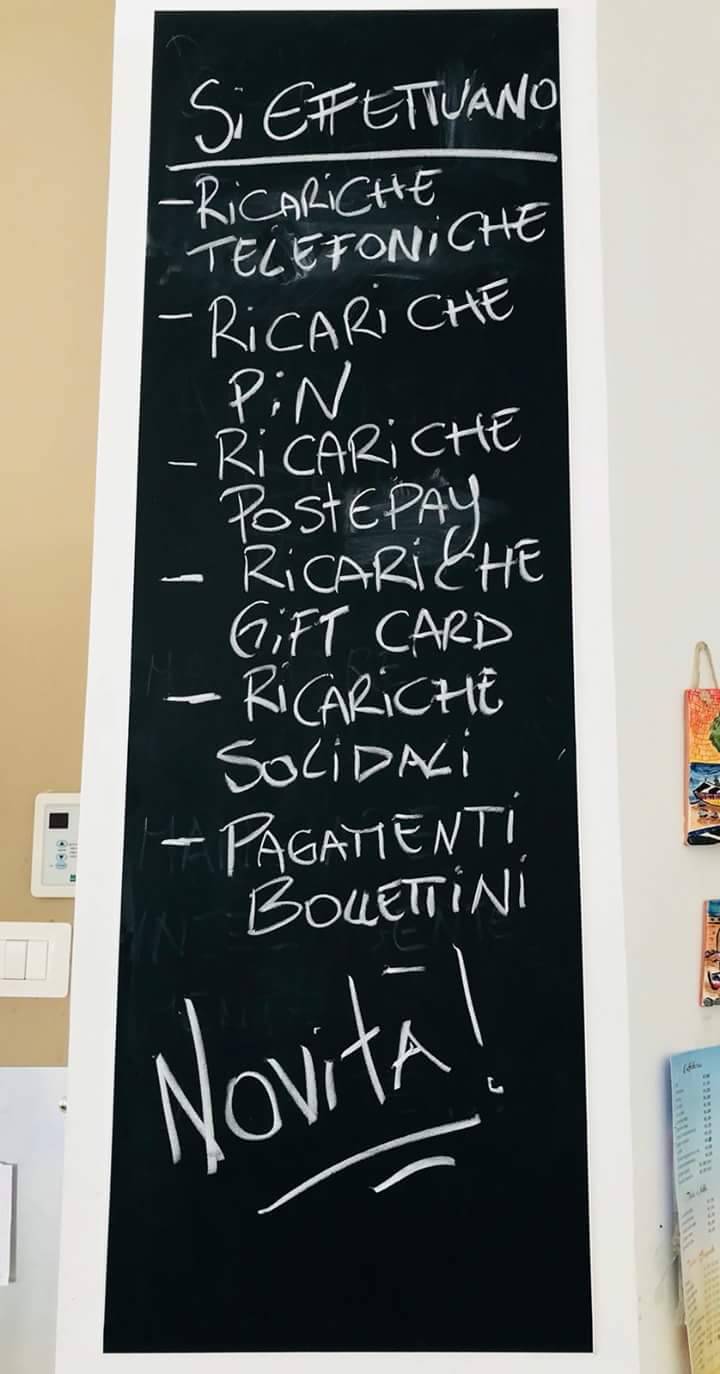 Si EFFETTUANO
- RiCARiCHE
TELEFONiCHE
- RiCARiCHE
PiN
- RiCARiCHE
POStEPAY
- RiCARiCHE
GiFT CARD
- RiCARiCHE
SOLiDALi
- PAGAMENTi
BOLLETTiNi
NOVitÀ!